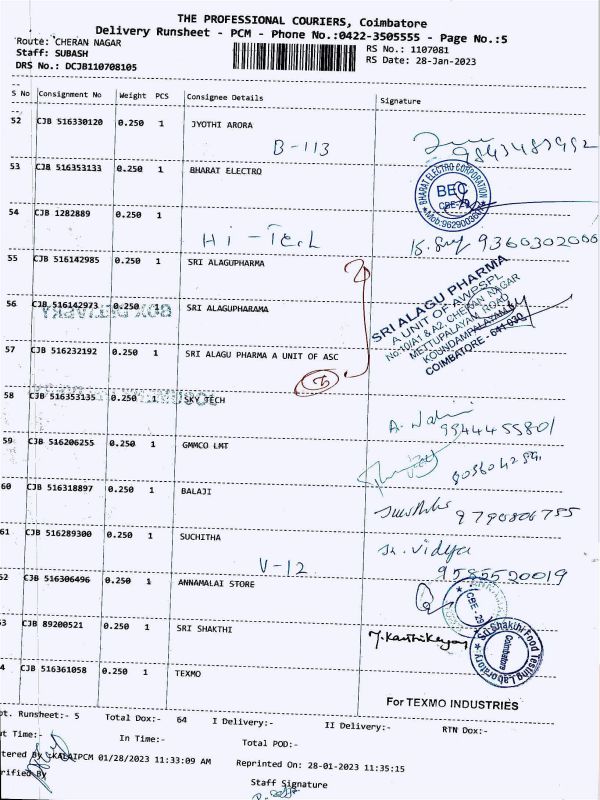 THE PROFESSIONAL COURIERS, Coimbatore
Delivery Runsheet - PCM - Phone No.:0422-3505555 - Page No.:5
Route: CHERAN NAGAR
RS No.: 1107081
Staff: SUBASH
RS Date: 28-Jan-2023
DRS No.: DCJB110708105
S No Consignment No Weight PCS Consignee Details Signature
52 CJB 516330120 0.250 1 JYOTHI ARORA
B-113
53 CJB 516353133 0.250 1 BHARAT ELECTRO
BHARAT ELECTRO CORPORATION
BEC
CBE-29
54 CJB 1282889 0.250 1
Hi-Tech
9360302000
55 CJB 516142985 0.250 1 SRI ALAGUPHARMA
SRI ALAGU PHARMA
A UNIT OF AWPSPL
No.10/A1 & A2, CHERAN NAGAR
METTUPALAYAM ROAD
KOUNDAMPALAYAM
COIMBATORE - 641 030
56 CJB 516142973 0.250 1 SRI ALAGUPHARAMA
BOX DELIVERY
57 CJB 516232192 0.250 1 SRI ALAGU PHARMA A UNIT OF ASC
3
58 CJB 516353135 0.250 1 SKY TECH
9944455801
59 CJB 516206255 0.250 1 GMMCO LMT
60 CJB 516318897 0.250 1 BALAJI
9790806755
61 CJB 516289300 0.250 1 SUCHITHA
V-12
Sk. Vidya
9585520019
52 CJB 516306496 0.250 1 ANNAMALAI STORE
CBE-29
53 CJB 89200521 0.250 1 SRI SHAKTHI
T. Karthikeyan
Sri Shakthi Food Testing Laboratory
Coimbatore
4 CJB 516361058 0.250 1 TEXMO
For TEXMO INDUSTRIES
pt. Runsheet:- 5 Total Dox:- 64 I Delivery:- II Delivery:- RTN Dox:-
ut Time:- In Time:- Total POD:-
tered By :KALAIPCM 01/28/2023 11:33:09 AM Reprinted On: 28-01-2023 11:35:15
rified By
Staff Signature